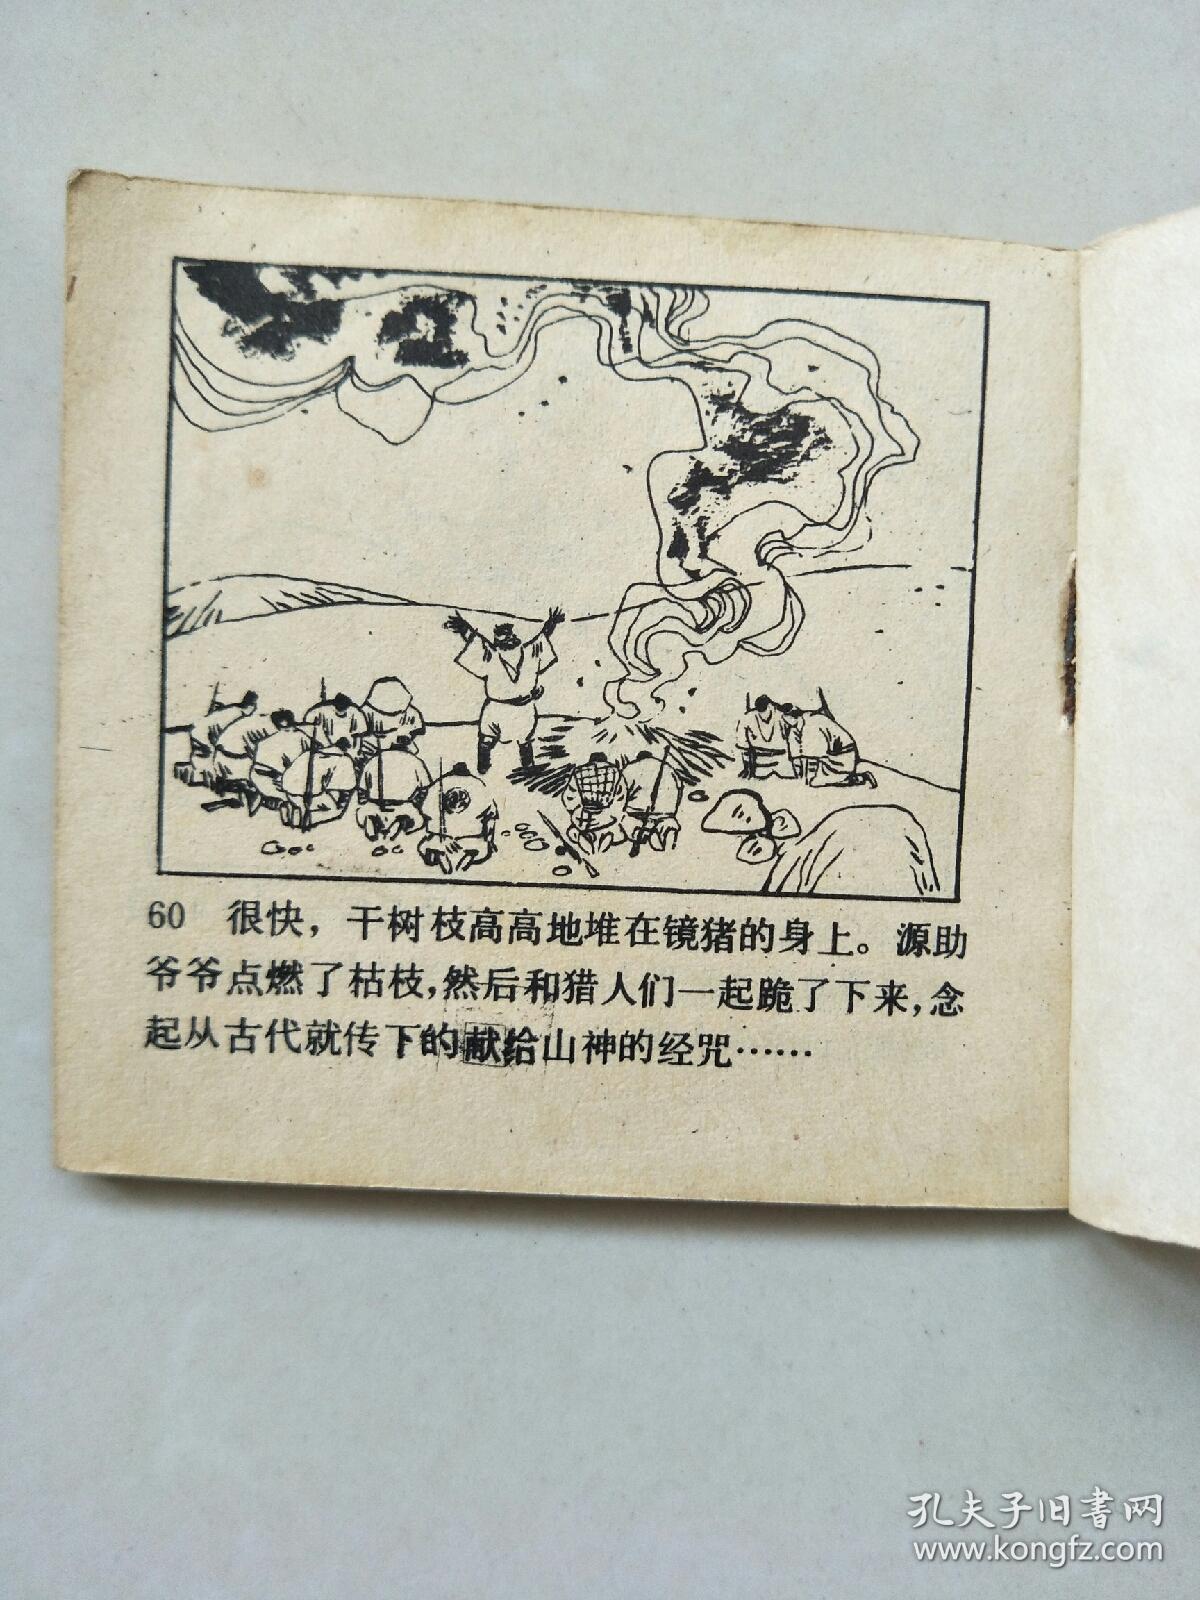 60 很快，干树枝高高地堆在镜猪的身上。源助
爷爷点燃了枯枝，然后和猎人们一起跪了下来，念
起从古代就传下的献给山神的经咒……
孔夫子旧书网
www.kongfz.com